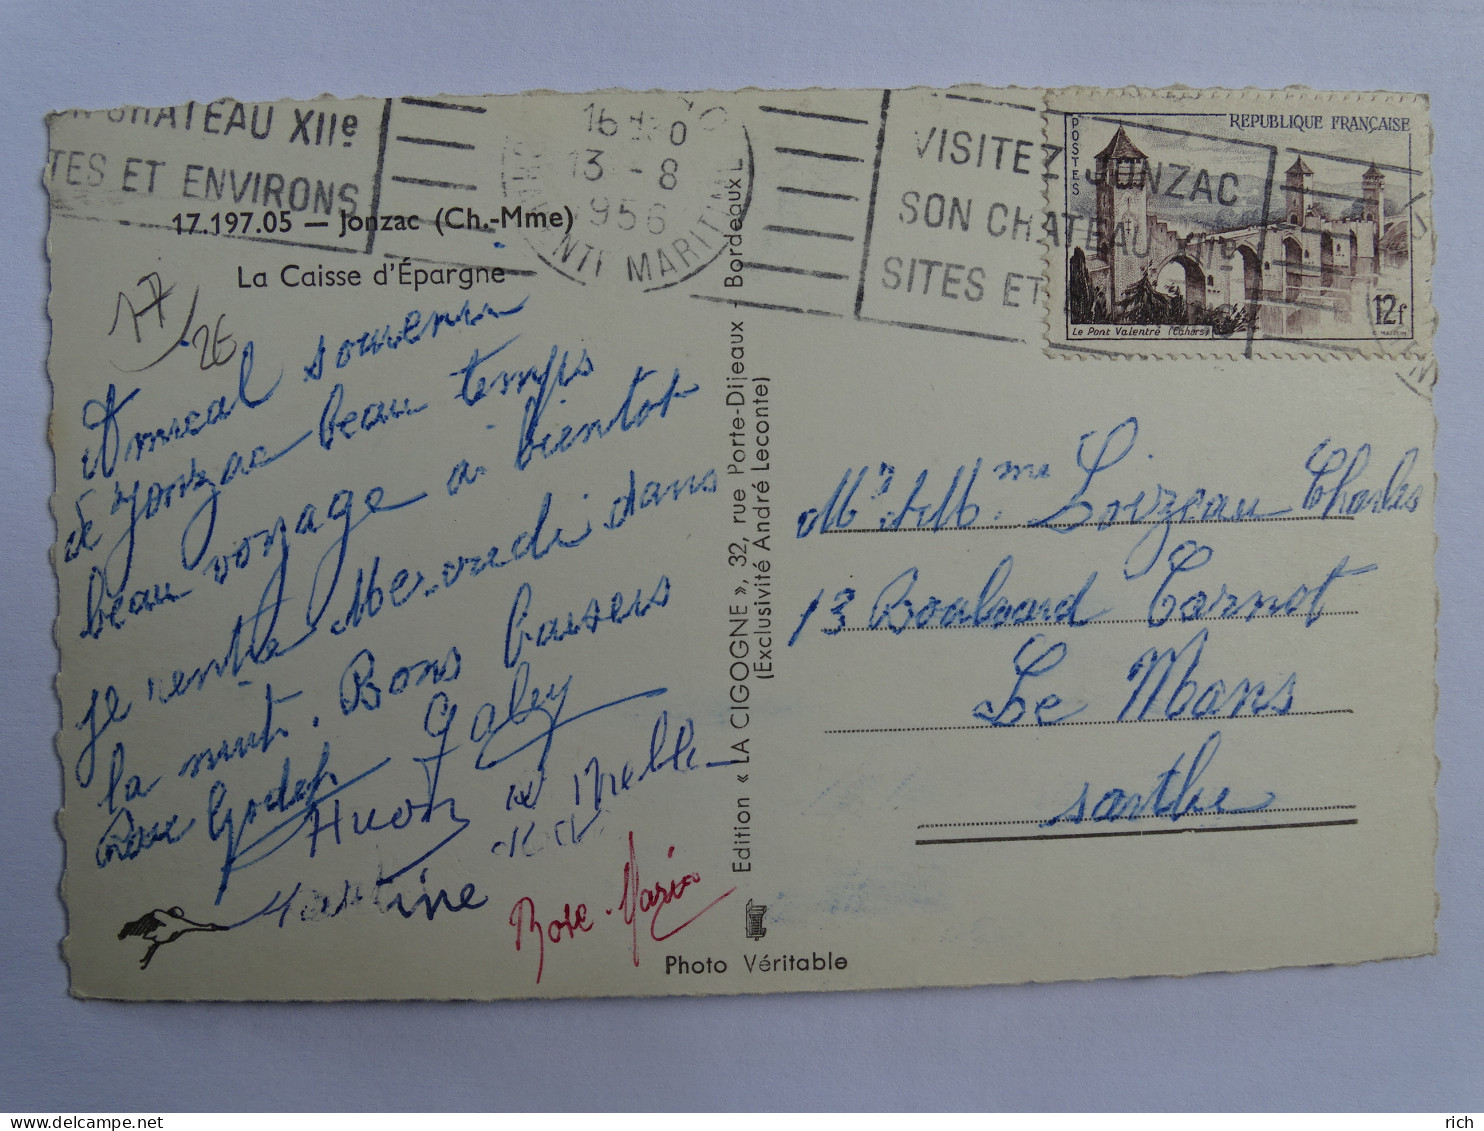 CHATEAU XIIe
TES ET ENVIRONS
16
13 - 8
1956
MARITIME
VISITEZ JONZAC
SON CHATEAU XIIe
SITES ET
POSTES
REPUBLIQUE FRANÇAISE
Le Pont Valentré (Cahors)
12f
17.197.05 — Jonzac (Ch.-Mme)
La Caisse d'Épargne
17
26
Amical souvenir
de Jonzac beau temps
beau voyage a bientot
je rentre Mercredi dans
la nuit. Bons baisers
Gaby
Huon
Martine
Rose-Marie
Edition « LA CIGOGNE », 32, rue Porte-Dijeaux - Bordeaux
(Exclusivité André Leconte)
Photo Véritable
Mr & Mme Loizeau Charles
13 Boulvard Carnot
Le Mans
sarthe
rich